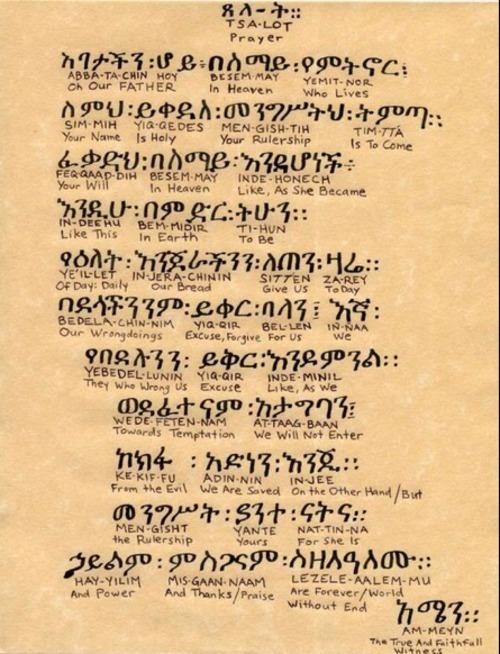 ጸሎ-ት፡፡
TSA-LOT
Prayer
አባታችን፡ሆይ፡በሰማይ፡የምትኖር፡
ABBA-TA-CHIN HOY BESEM-MAY YEMIT-NOR
Oh Our FATHER In Heaven Who Lives
ስምህ፡ይቀደስ፡መንግሥትህ፡ትምጣ፡፡
SIM-MIH YIQ-QEDES MEN-GISH-TIH TIM-TTA
Your Name Is Holy Your Rulership Is To Come
ፈቃድህ፡በሰማይ፡እንደሆነች፡
FEQ-QAAD-DIH BESEM-MAY INDE-HONECH
Your Will In Heaven Like, As She Became
እንዲሁ፡በም ድር፡ትሁን፡፡
IN-DEEHU BEM-MIDIR TI-HUN
Like This In Earth To Be
የዕለት፡እንጀራችንን፡ስጠን፡ዛሬ፡፡
YE'IL-LET IN-JERA-CHININ SITTEN ZA-REY
Of Day: Daily Our Bread Give Us ToDay
በደላችንንም፡ይቀር፡በለን፤ እኛ፡
BEDELA-CHIN-NIM YIQ-QIR BEL-LEN IN-NAA
Our Wrongdoings Excuse, Forgive For Us We
የበደሉንን፡ ይቅር፡እንደምንል፡፡
YEBEDEL-LUNIN YIQ-QIR INDE-MINIL
They Who Wrong Us Excuse Like, As We
ወደፈተ ናም፡አታግባን፤
WEDE-FETEN-NAM AT-TAAG-BAAN
Towards Temptation We Will Not Enter
ከክፋ ፡ አድነን፡እንጂ፡፡
KE-KIF-FU ADIN-NIN IN-JEE
From the Evil We Are Saved On the Other Hand/But
መንግሥት፡ያንተ፡ናትና፡፡
MEN-GISHT YANTE NAT-TIN-NA
the Rulership Yours For She Is
ኃይልም፡ምስጋናም፡ስዘለዓለሙ፡፡
HAY-YILIM MIS-GAAN-NAAM LEZELE-AALEM-MU
And Power And Thanks/Praise Are Forever/World
Without End
አሜን፡፡
AM-MEYN
The True And Faithfull
Witness